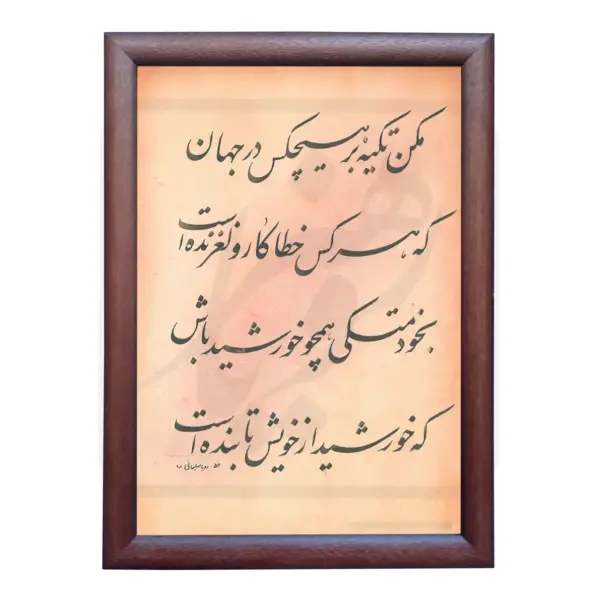 مکن تکیه بر هیچکس در جهان
که هر کس خطا کار و لغزنده است
بخود متکی همچو خورشید باش
که خورشید از خویش تابنده است